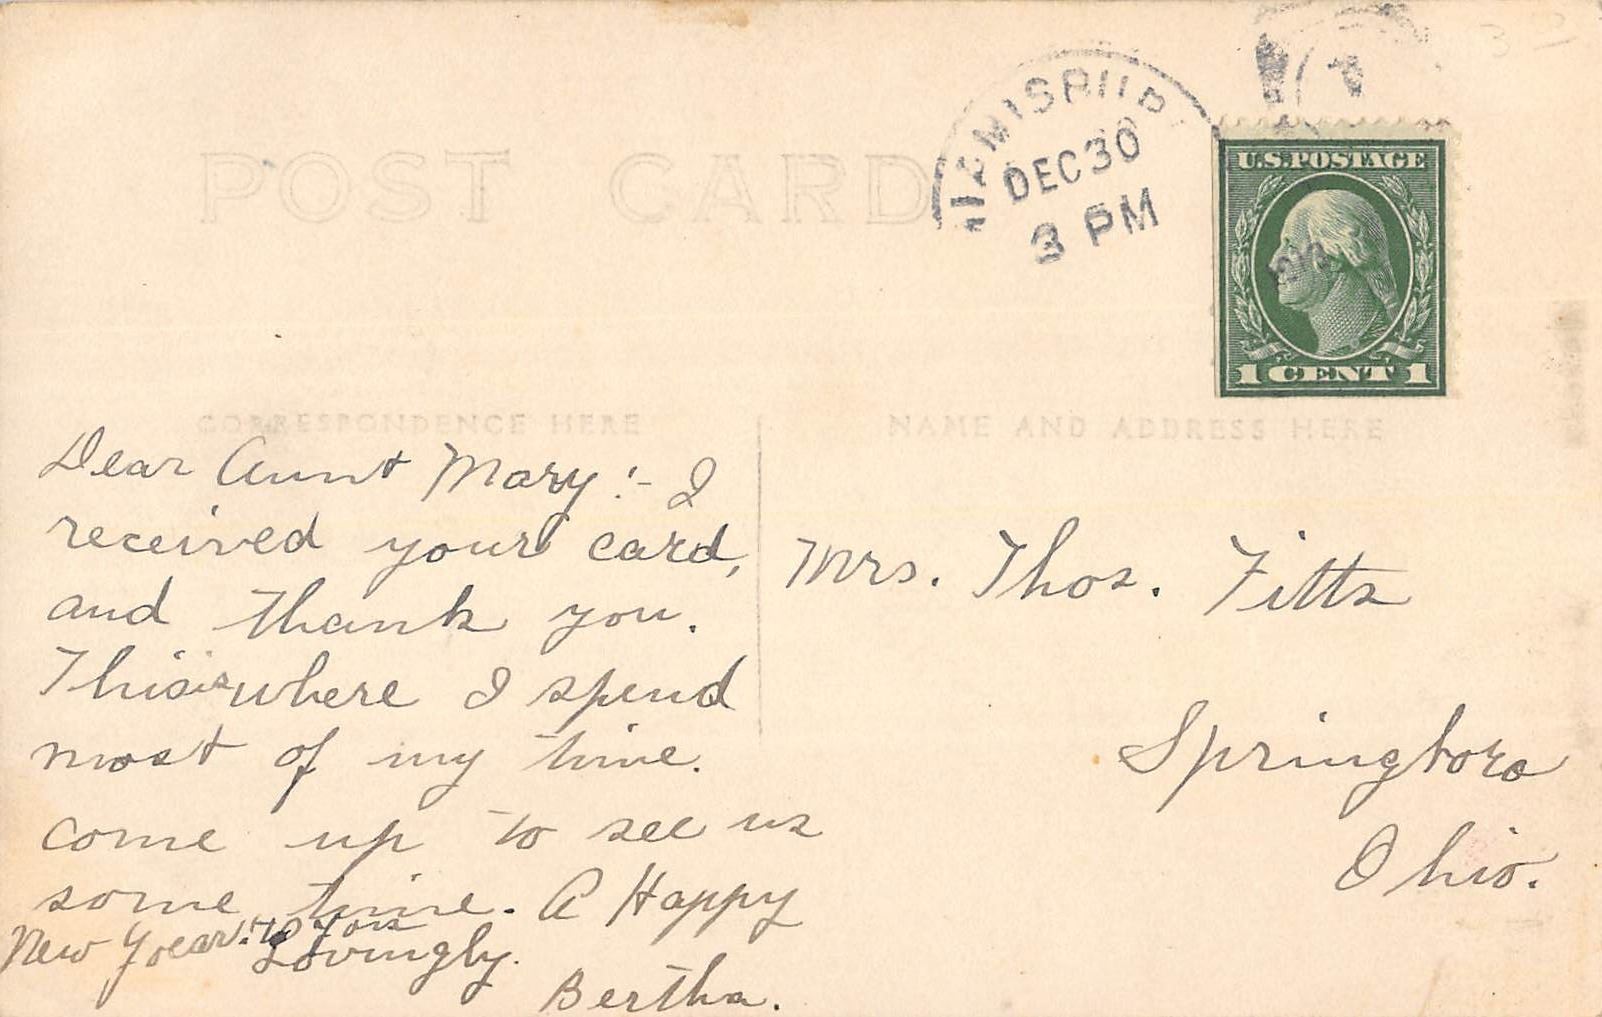 POST CARD
MIAMISBURG
DEC 30
3 PM
U.S. POSTAGE
1 CENT 1
CORRESPONDENCE HERE
NAME AND ADDRESS HERE
Dear Aunt Mary:- I
received your card,
and thank you.
This is where I spend
most of my time.
come up to see us
some time. A Happy
New Year. to you
Lovingly.
Bertha.
Mrs. Thos. Fitts
Springboro
Ohio.